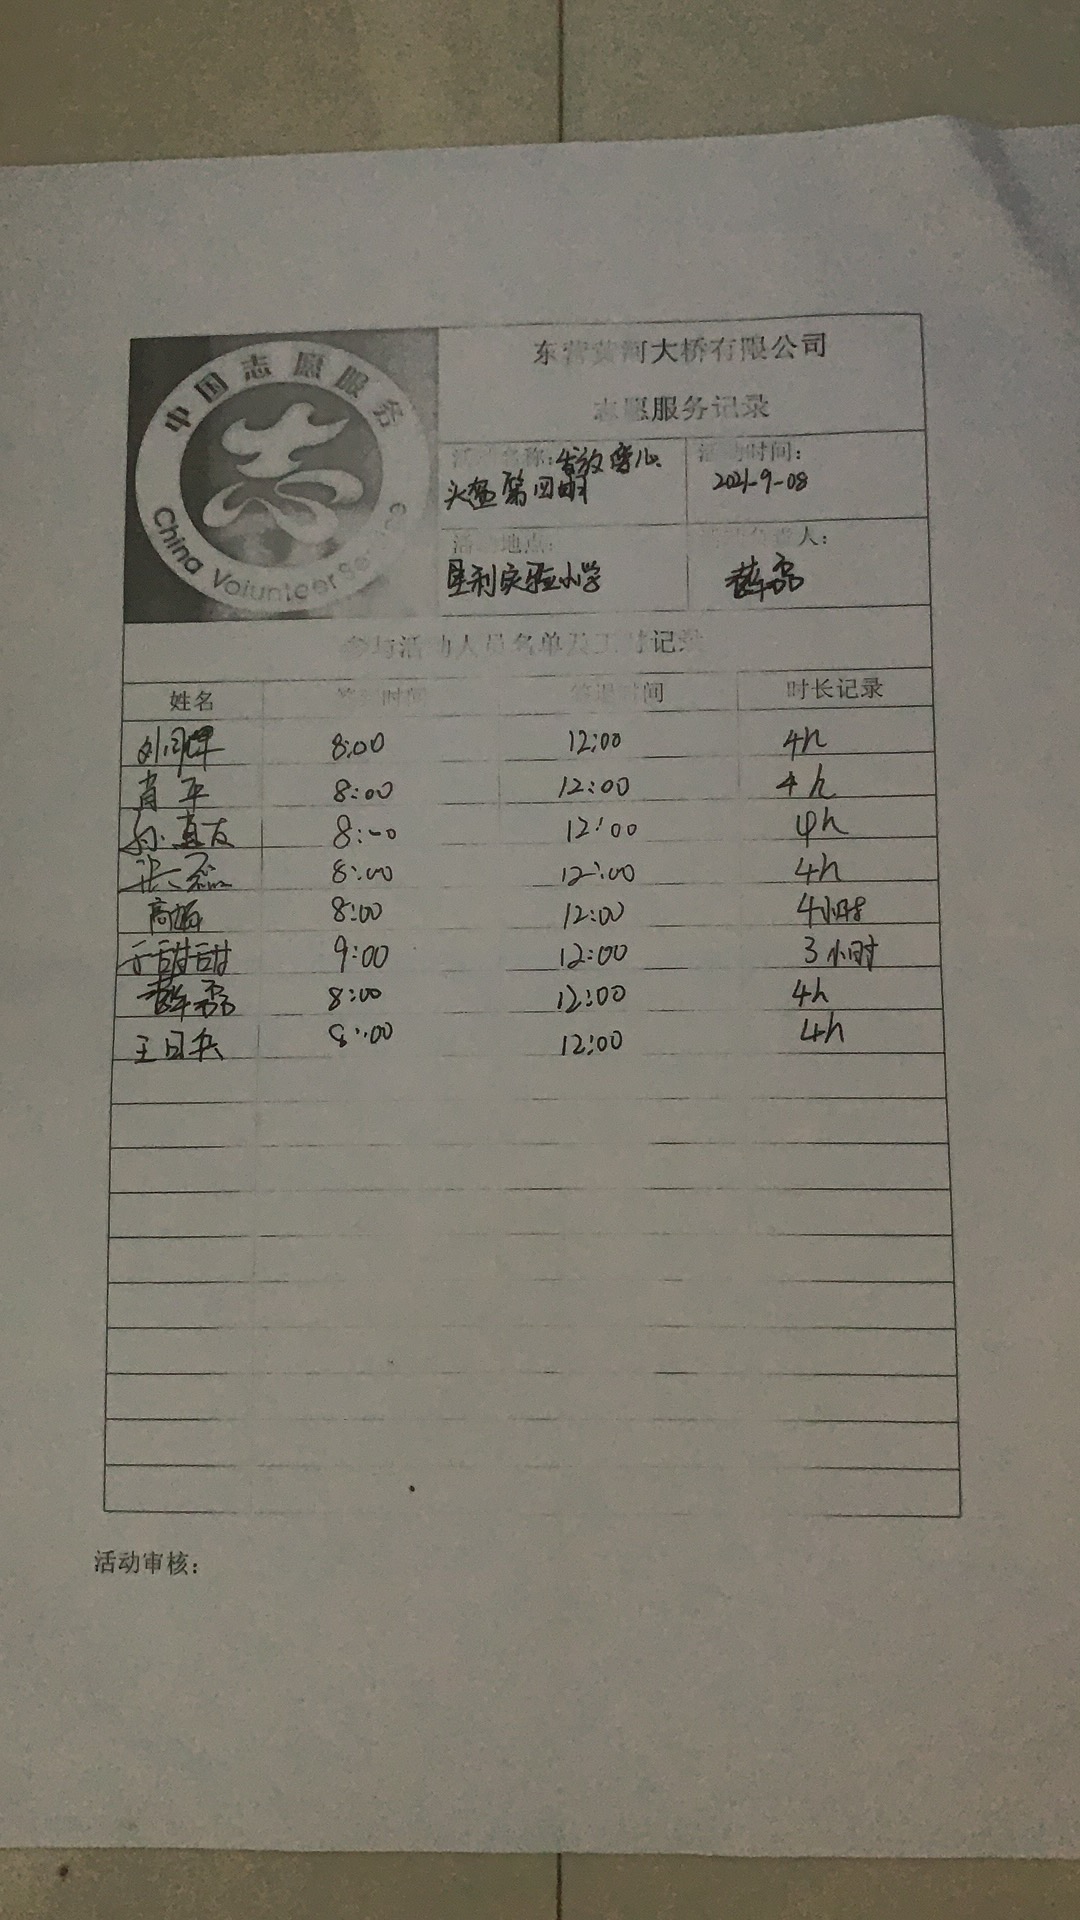 中国志愿服务
China Volunteer Service
东营黄河大桥有限公司
志愿服务记录
活动名称:发放安心
头盔第四期
活动时间:
2021-9-08
活动地点:
胜利实验小学
活动负责人:
参与活动人员名单及工时记录
姓名 签到时间 签退时间 时长记录
8:00 12:00 4h
肖平 8:00 12:00 4h
8:00 12:00 4h
张磊 8:00 12:00 4h
高娟 8:00 12:00 4小时
于甜甜 9:00 12:00 3小时
8:00 12:00 4h
王日兵 8:00 12:00 4h
活动审核: